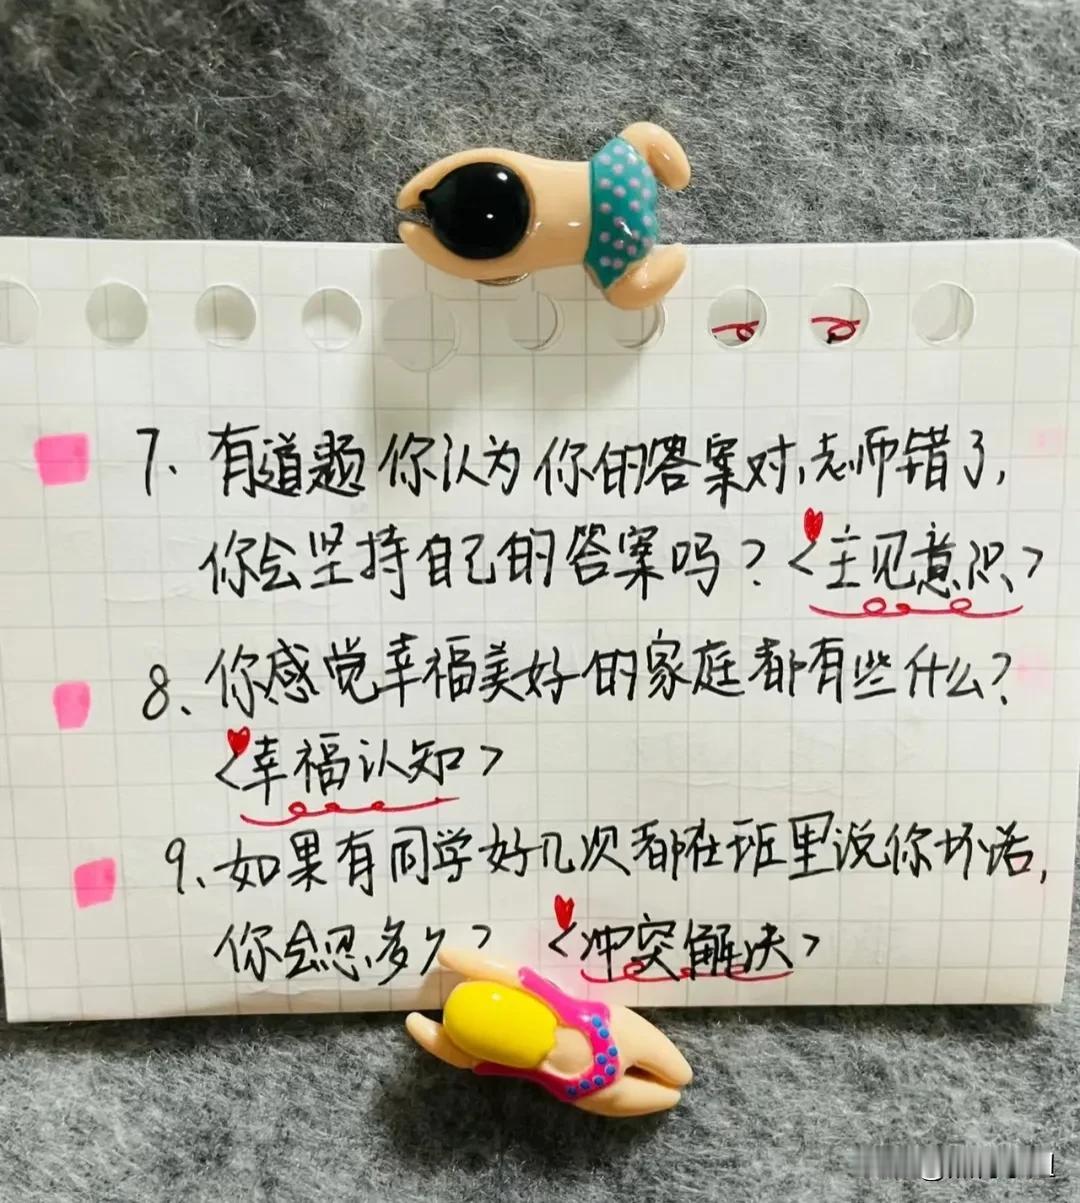 7、有道题你认为你的答案对,老师错了,
你会坚持自己的答案吗?<主见意识>
8、你感觉幸福美好的家庭都有些什么?
<幸福认知>
9、如果有同学好几次都在班里说你坏话,
你会忍多久? <冲突解决>